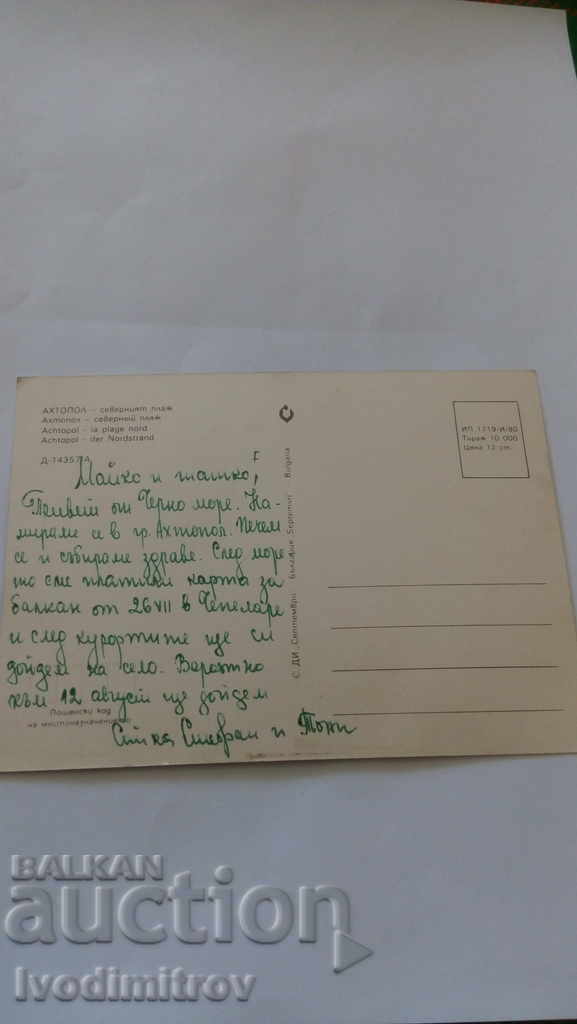 АХТОПОЛ – северният плаж
Ахтопол – северный пляж
Achtopol – la plage nord
Achtopol – der Nordstrand
Д-14357-А
ИП 1719/И/80
Тираж 10 000
Цена 12 ст.
Майко и татко,
Привет от Черно море. На-
мираме се в гр. Ахтопол. Печем
се и събираме здраве. След море
то сме платили карта за
балкан от 26 VII в Чепеларе
и след курортите ще си
дойдем на село. Вероятно
към 12 август ще дойдем
Пощенски код
на местоназначението
Стефан и Тони
© ДИ „Септември" България Septemvri Bulgaria
BALKAN
auction
Ivodimitrov